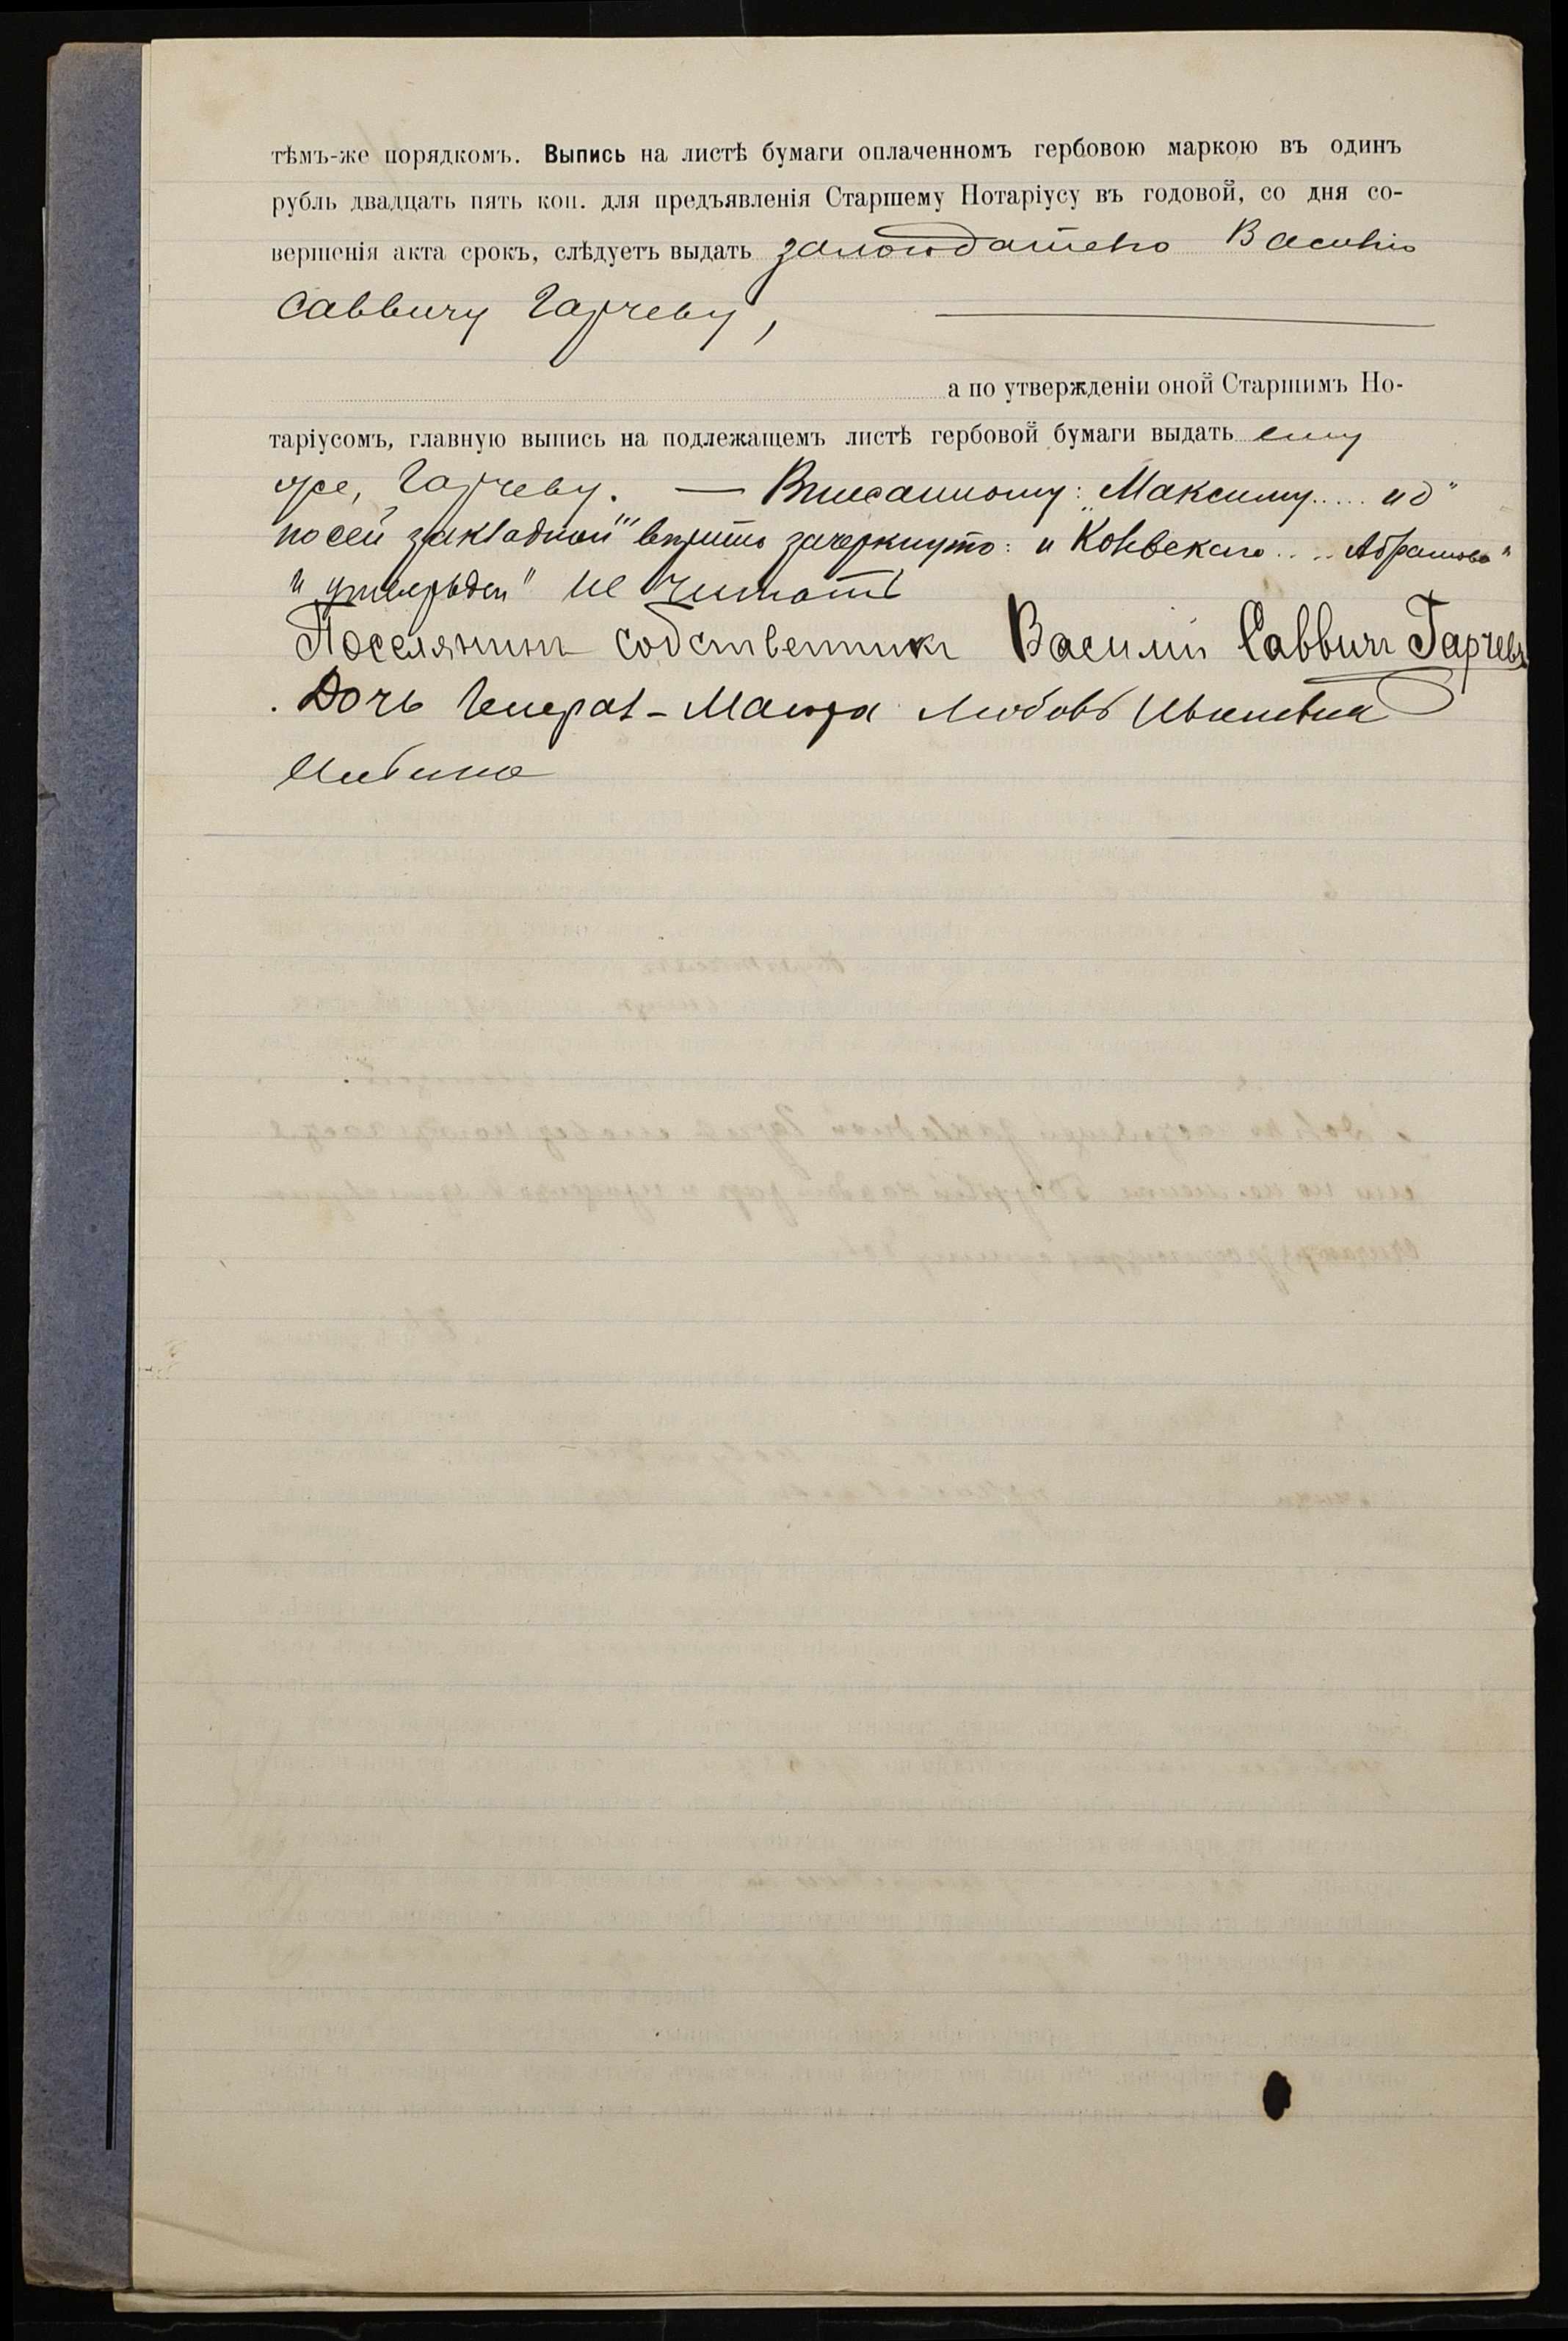 тѣмъ-же порядкомъ. Выпись на листѣ бумаги оплаченномъ гербовою маркою въ одинъ
рубль двадцать пять коп. для предъявленія Старшему Нотаріусу въ годовой, со дня со-
вершенія акта срокъ, слѣдуетъ выдать залогодателю Василію
Саввичу Гарчеву,
а по утвержденіи оной Старшимъ Но-
таріусомъ, главную выпись на подлежащемъ листѣ гербовой бумаги выдать ему
же, Гарчеву. — Вписанному: „Максиму.....
по сей закладной" вѣрить зачеркнуто: и
не читать
Поселянинъ собственникъ Василій Саввичъ Гарчевъ
Дочь Генерал-Маіора Любовь Ивановна